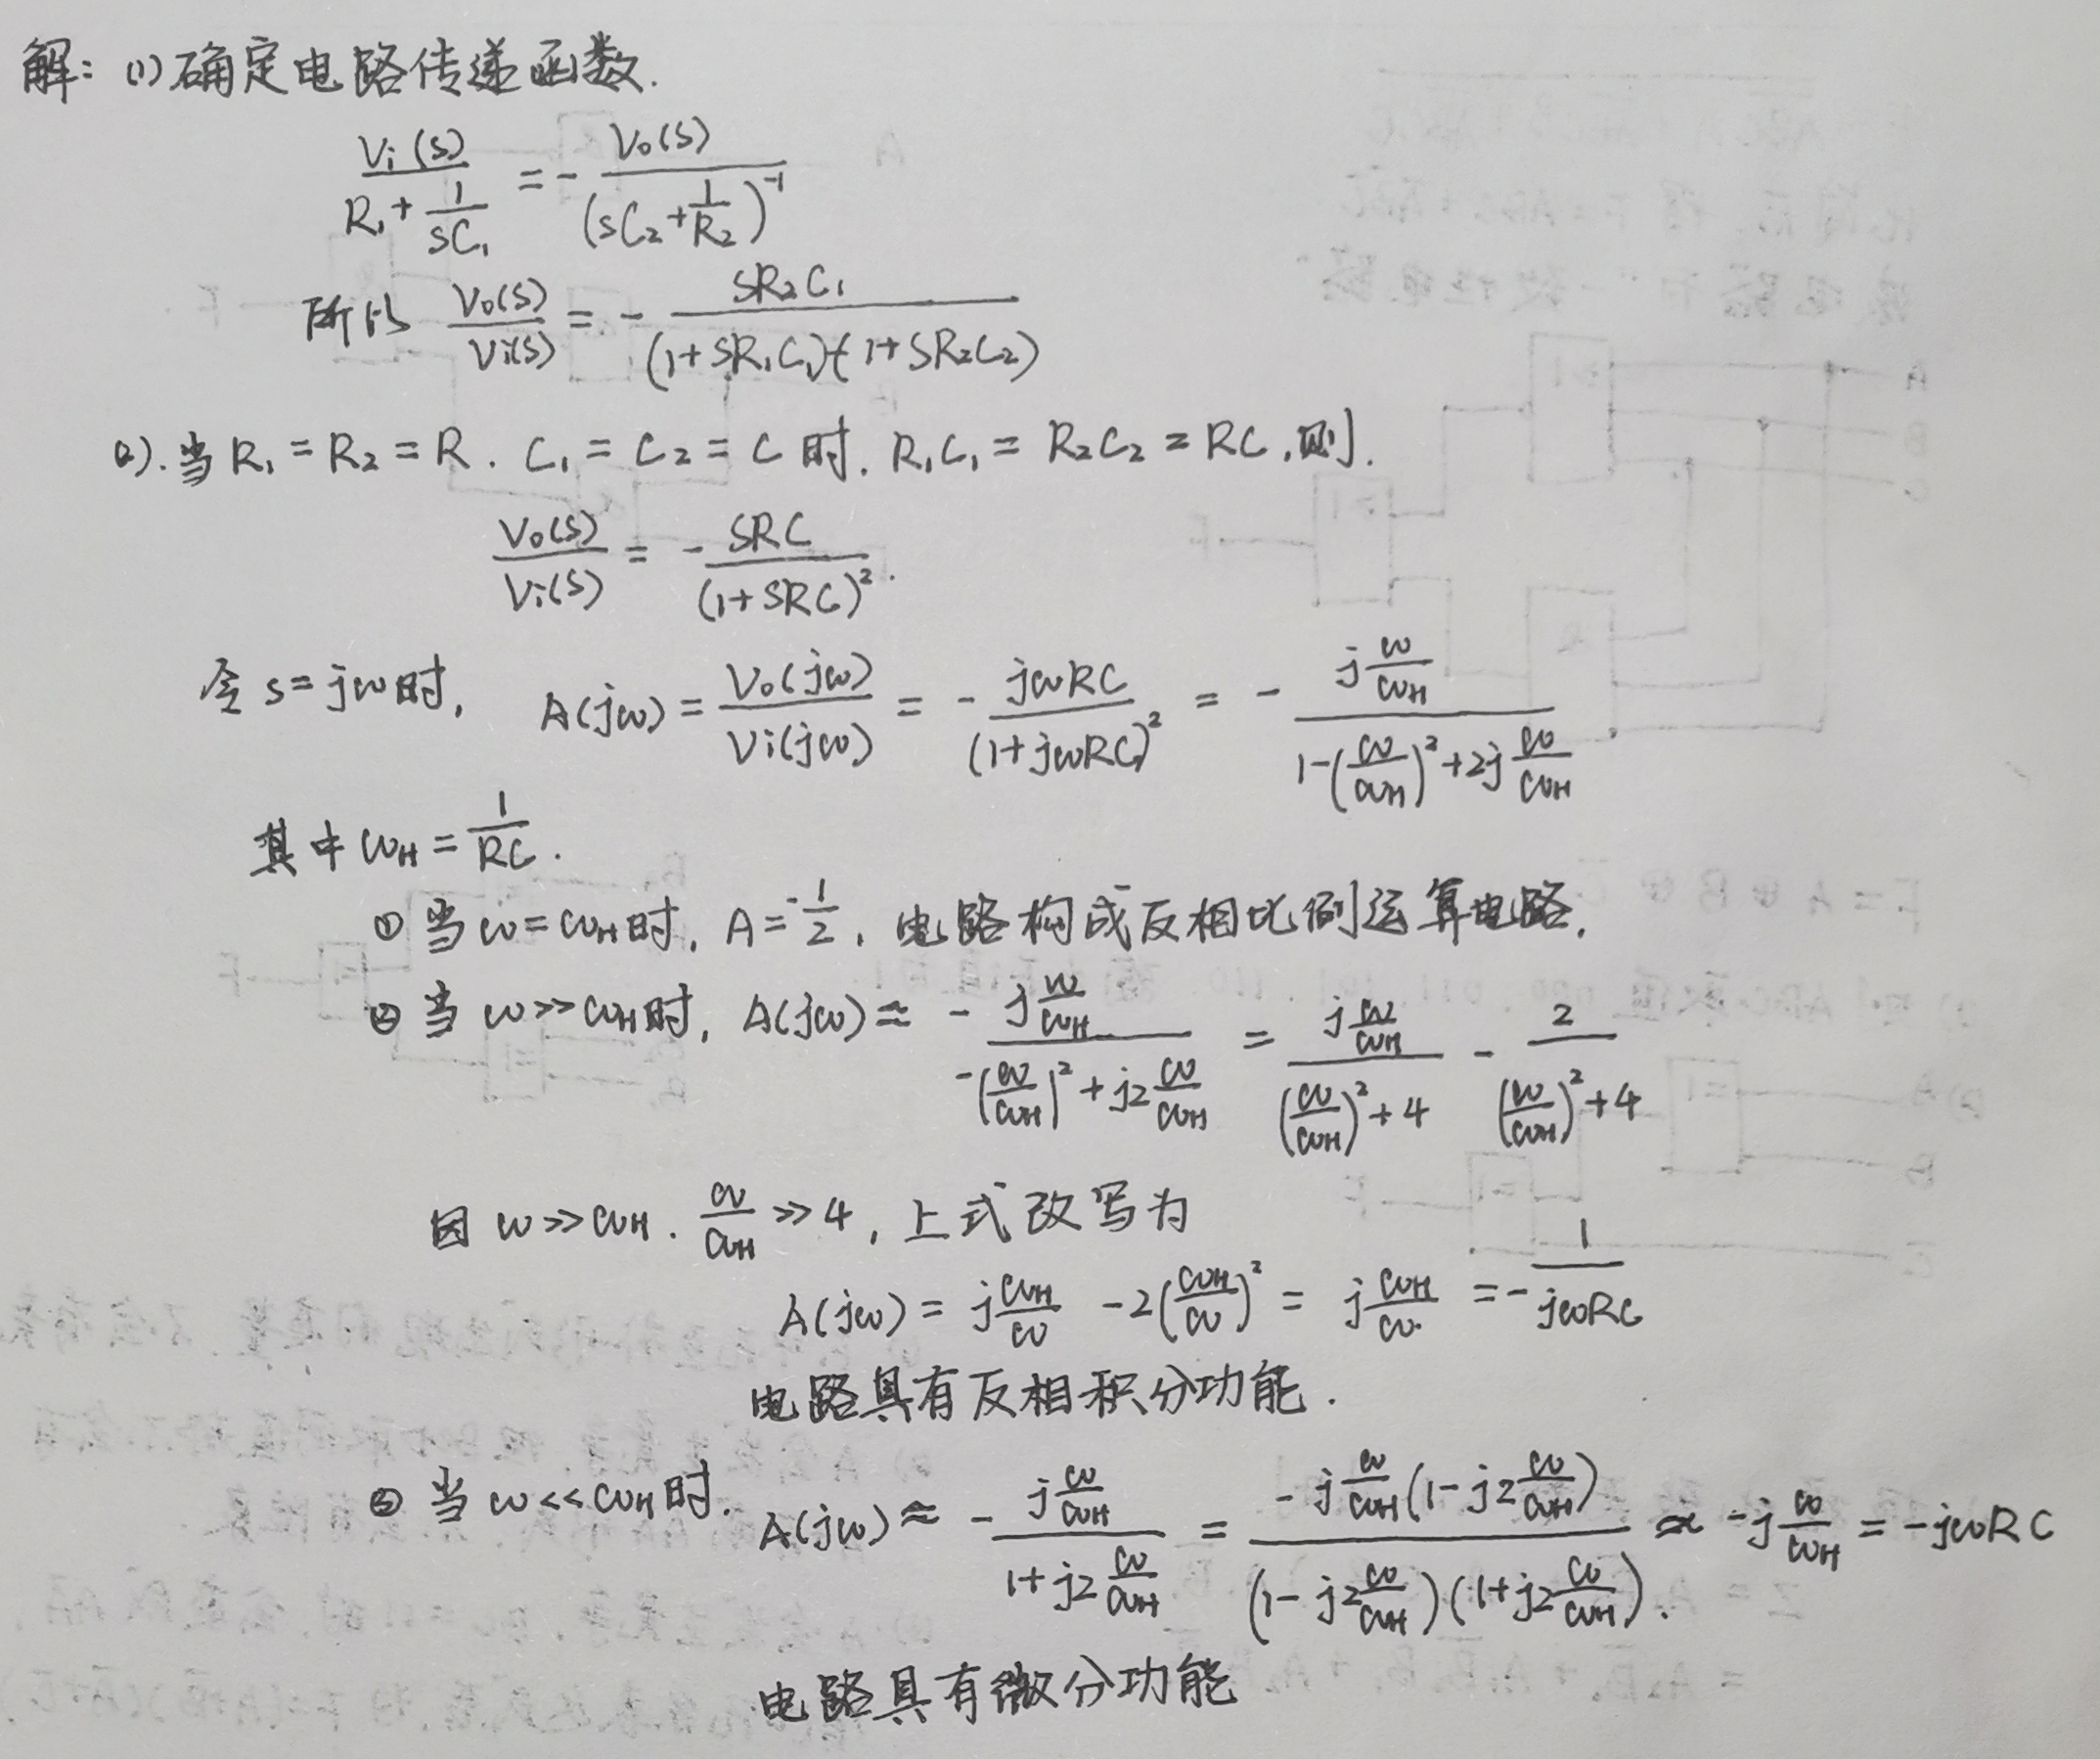 解: (1)确定电路传递函数.
Vi(s)/(R₁+1/(sC₁)) = -Vo(s)/(sC₂+1/R₂)⁻¹
所以 Vo(s)/Vi(s) = -SR₂C₁/((1+SR₁C₁)(1+SR₂C₂))
2).当R₁=R₂=R. C₁=C₂=C时. R₁C₁=R₂C₂=RC,则.
Vo(s)/Vi(s) = -SRC/(1+SRC)².
令s=jω时, A(jω)=Vo(jω)/Vi(jω) = -jωRC/(1+jωRC)² = -(j ω/ωH)/(1-(ω/ωH)²+2j ω/ωH)
其中ωH=1/RC.
① 当ω=ωH时, A=-1/2, 电路构成反相比例运算电路.
② 当ω>>ωH时, A(jω)≈ -(j ω/ωH)/(-(ω/ωH)²+j2 ω/ωH) = (j ω/ωH)/((ω/ωH)²+4) - 2/((ω/ωH)²+4)
因ω>>ωH. ω/ωH>>4, 上式改写为
A(jω)= j ωH/ω -2(ωH/ω)² = j ωH/ω = -1/(jωRC)
电路具有反相积分功能.
③ 当ω<<ωH时. A(jω)≈ -(j ω/ωH)/(1+j2 ω/ωH) = -j ω/ωH(1-j2 ω/ωH)/((1-j2 ω/ωH)(1+j2 ω/ωH)) ≈ -j ω/ωH = -jωRC
电路具有微分功能